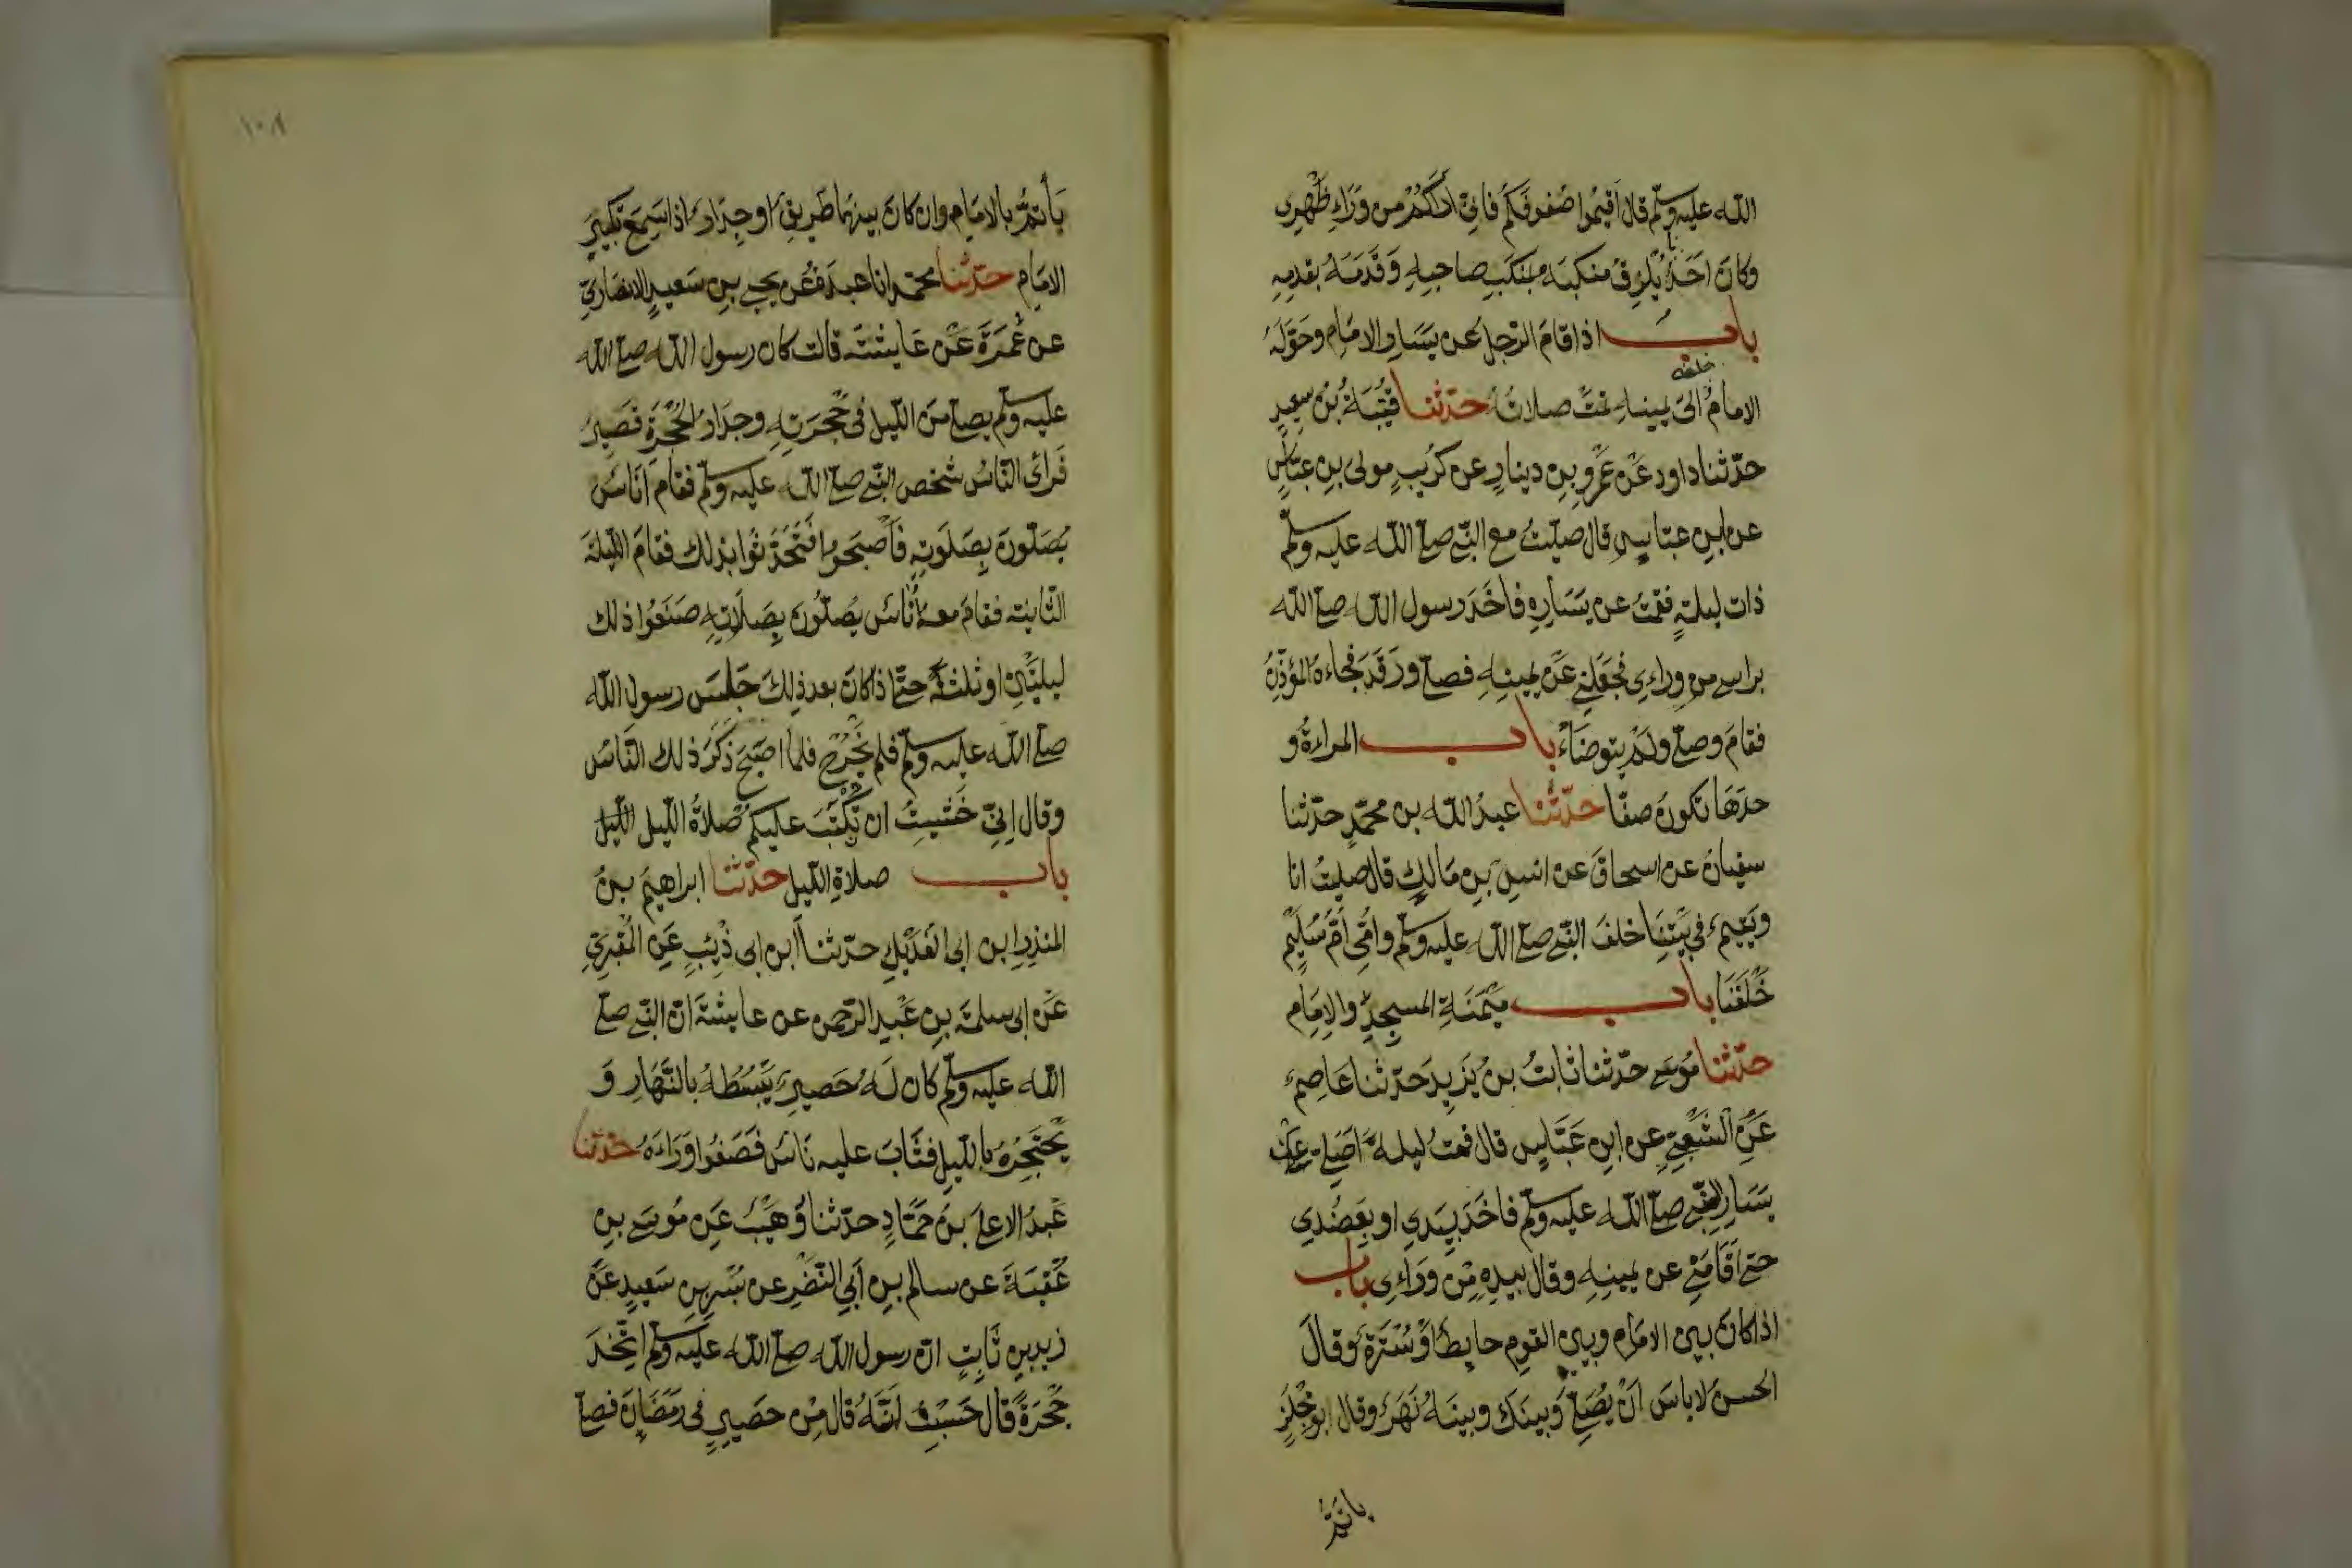 الله عليه وسلم قال اقيموا صفوفكم فاني اراكم من وراء ظهري
وكان احدنا يلزق منكبه بمنكب صاحبه وقدمه بقدمه
باب اذا قام الرجل عن يسار الامام وحوله
الامام خلفه الى يمينه تمت صلاته حدثنا قتيبة بن سعيد
حدثنا داود عن عمرو بن دينار عن كريب مولى بن عباس
عن ابن عباس قال صليت مع النبي صلى الله عليه وسلم
ذات ليلة فقمت عن يساره فاخذ رسول الله صلى الله
براسي من وراءي فجعلني عن يمينه فصلى ورقد فجاءه المؤذن
فقام وصلى ولم يتوضاء باب المراءة و
حدها تكون صفا حدثنا عبد الله بن محمد حدثنا
سفيان عن اسحاق عن انس بن مالك قال صليت انا
ويتيم في بيتنا خلف النبي صلى الله عليه وسلم وامي ام سليم
خلفنا باب ميمنة المسجد والامام
حدثنا موسى حدثنا ثابت بن يزيد حدثنا عاصم
عن الشعبي عن ابن عباس قال قمت ليلة اصلي عن
يسار النبي صلى الله عليه وسلم فاخذ بيدي او بعضدي
حتى اقامني عن يمينه وقال بيده من وراءي باب
اذا كان بين الامام وبين القوم حايط او سترة وقال
الحسن لا باس ان يصلي وبينك وبينه نهر وقال ابو مجلز
ياتم
١٠٨
يأتم بالامام وان كان بينهما طريق او جدار اذا سمع تكبير
الامام حدثنا محمد انا عبدة عن يحيى بن سعيد الانصاري
عن عمرة عن عايشة قالت كان رسول الله صلى الله
عليه وسلم يصلي من الليل في حجرته وجدار الحجرة قصير
فراى الناس شخص النبي صلى الله عليه وسلم فقام اناس
يصلون بصلوته فاصبحوا فتحدثوا بذلك فقام الليلة
الثانية فقام معه اناس يصلون بصلاته صنعوا ذلك
ليلتين او ثلثة حتى اذا كان بعد ذلك جلس رسول الله
صلى الله عليه وسلم فلم يخرج فلما اصبح ذكر ذلك الناس
وقال اني خشيت ان تكتب عليكم صلاة الليل الليل
باب صلاة الليل حدثنا ابراهيم بن
المنذر ابن ابي الفديك حدثنا ابن ابي ذئب عن المقبري
عن ابي سلمة بن عبد الرحمن عن عايشة ان النبي صلى
الله عليه وسلم كان له حصير يبسطه بالنهار و
يحتجره بالليل فثاب عليه ناس فصفوا وراءه حدثنا
عبد الاعلى بن حماد حدثنا وهيب عن موسى بن
عقبة عن سالم بن ابي النضر عن بسر بن سعيد عن
زيد بن ثابت ان رسول الله صلى الله عليه وسلم اتخذ
حجرة قال حسبت انه قال من حصير في رمضان فصلى